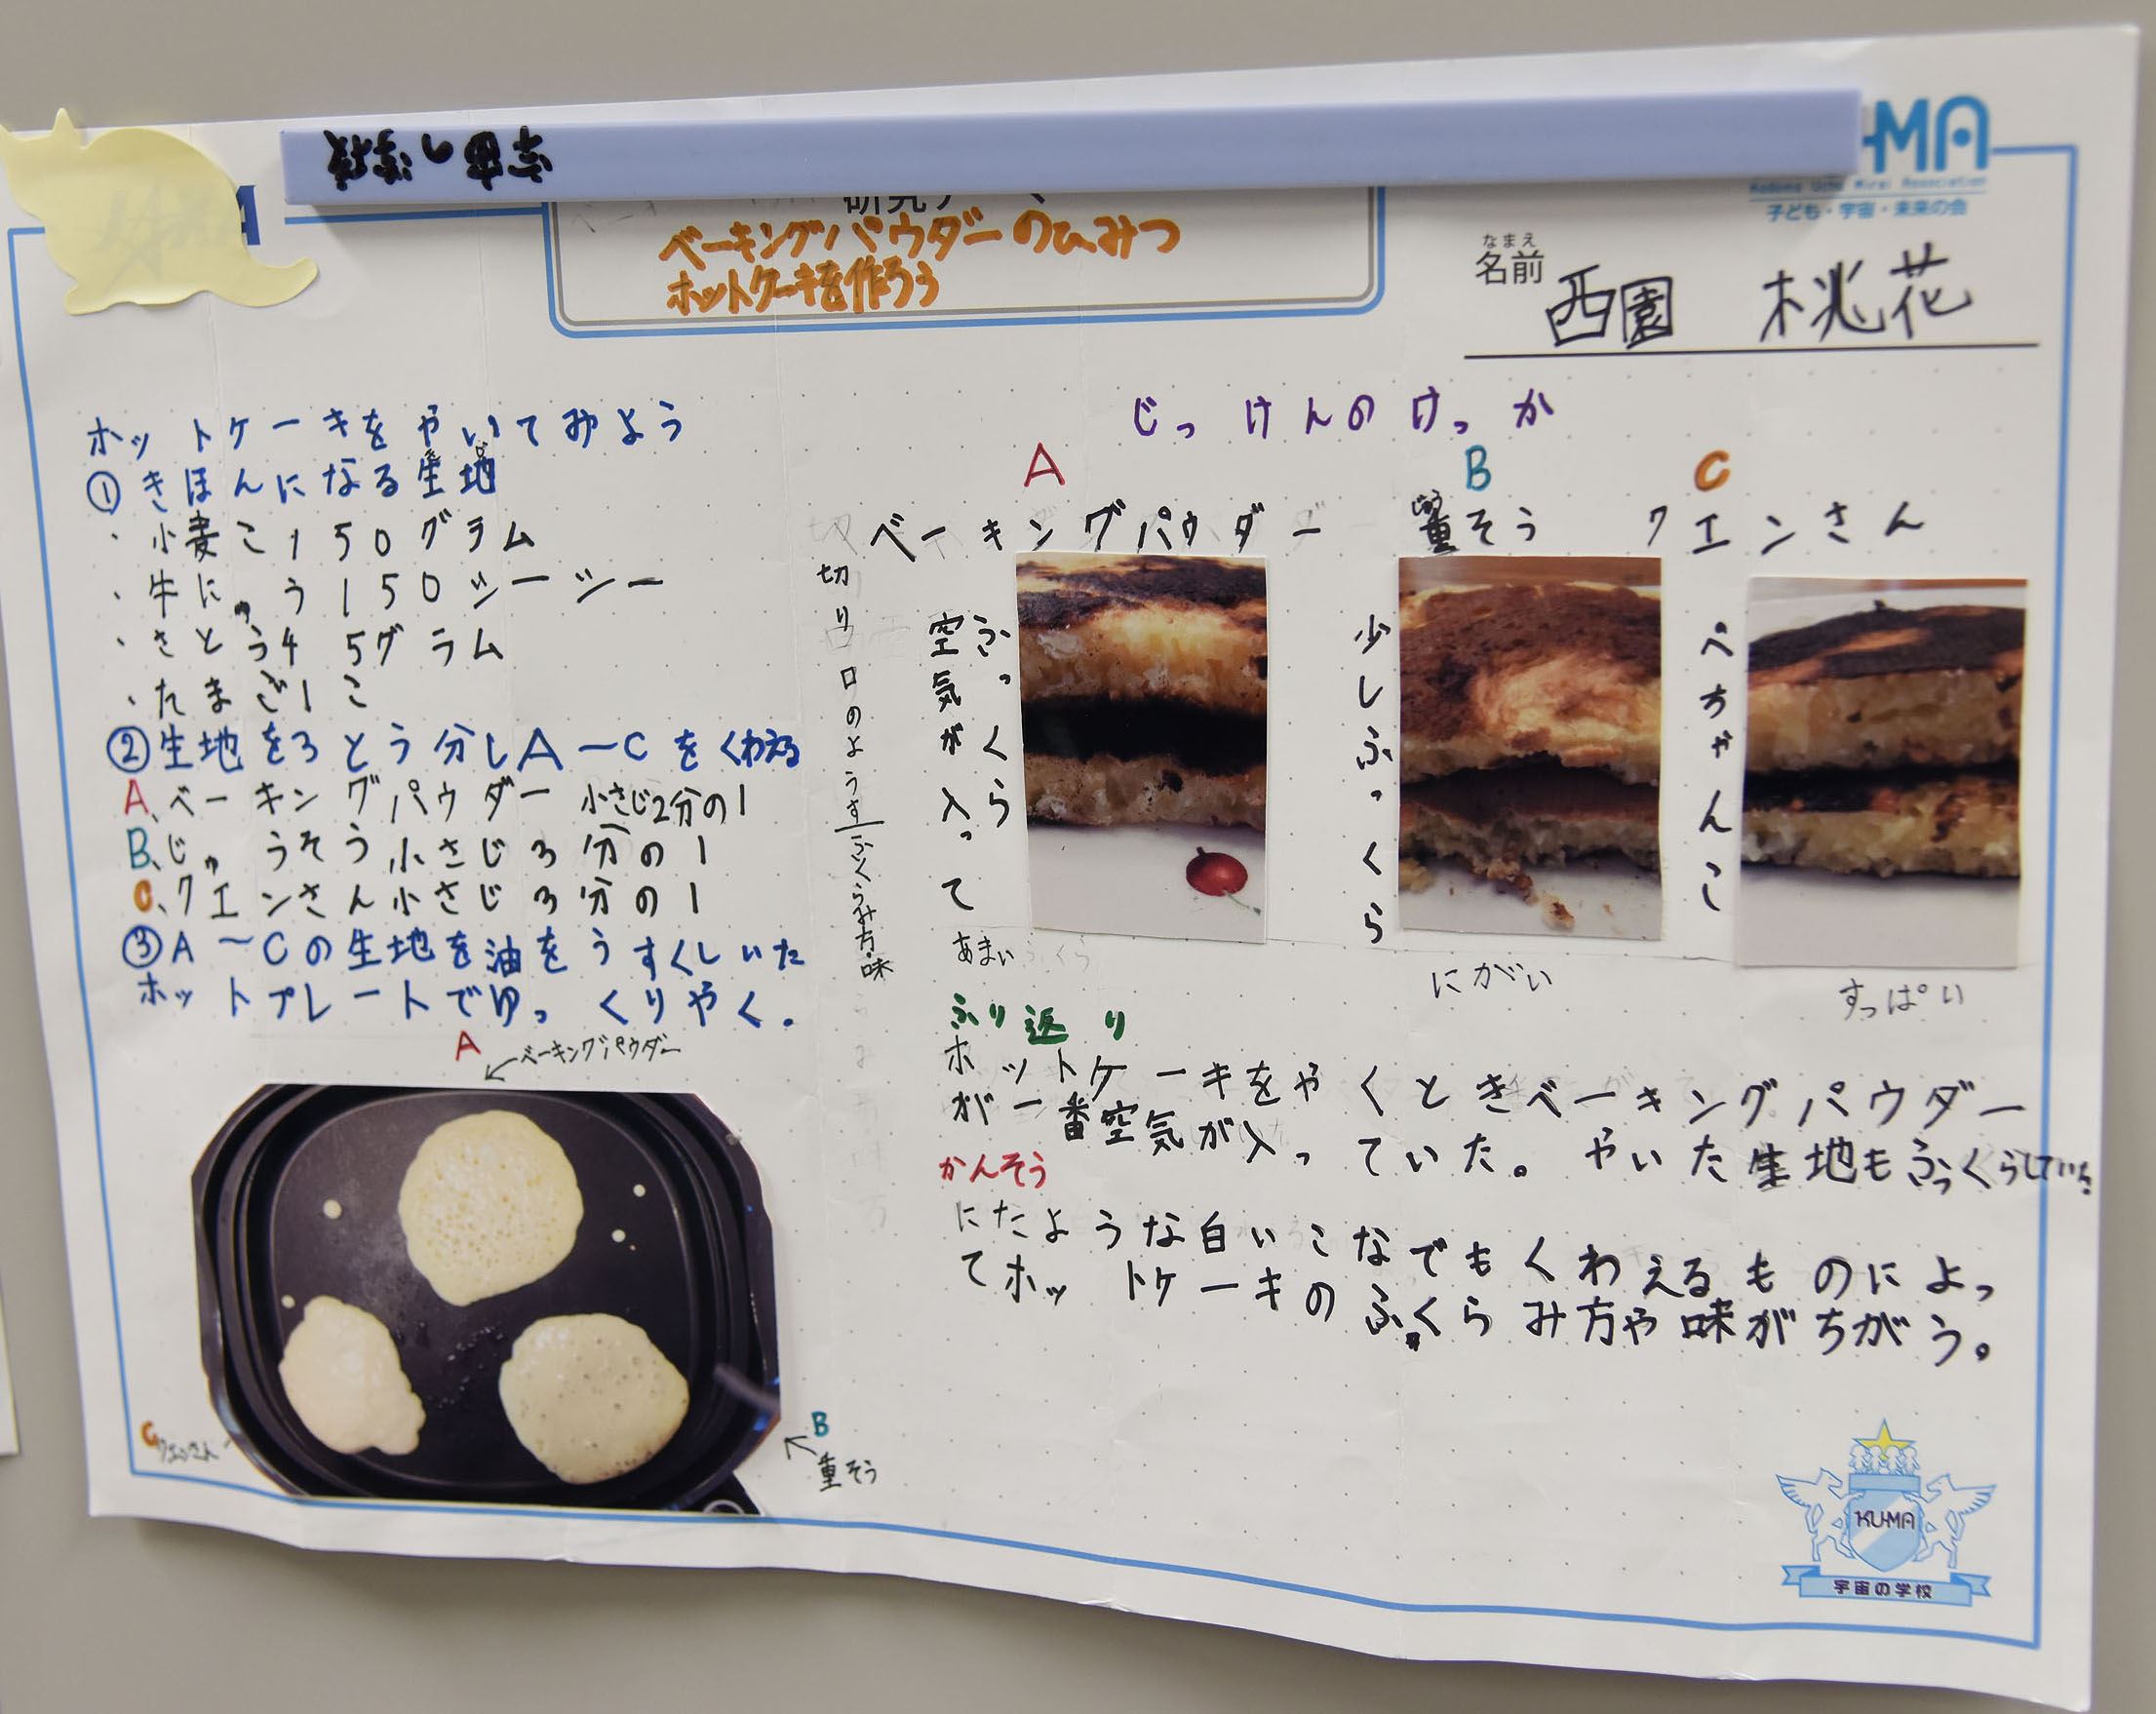 MA
Kodomo Uchu Mirai Association
子ども・宇宙・未来の会
ベーキングパウダーのひみつ
ホットケーキを作ろう
なまえ
名前
西園 桃花
ホットケーキをやいてみよう
①きほんになる生地
・小麦こ150グラム
・牛にゅう150シーシー
・さとう45グラム
・たまご1こ
②生地を3とう分しA〜Cをくわえる
A、ベーキングパウダー 小さじ2分の1
B、じゅうそう小さじ3分の1
C、クエンさん小さじ3分の1
③A〜Cの生地を油をうすくしいた
ホットプレートでゆっくりやく.
A
ベーキングパウダー
C
クエンさん
B
重そう
じっけんのけっか
A
ベーキングパウダー
B
じゅう
重そう
C
クエンさん
切り口のようす
ふくらみ方・味
ふっくら
空気が入って
あまい
少しふっくら
にがい
ぺちゃんこ
すっぱい
ふり返り
ホットケーキをやくときベーキングパウダー
が一番空気が入っていた。やいた生地もふっくらしていた
かんそう
にたような白いこなでもくわえるものによっ
てホットケーキのふくらみ方や味がちがう。
KU-MA
宇宙の学校